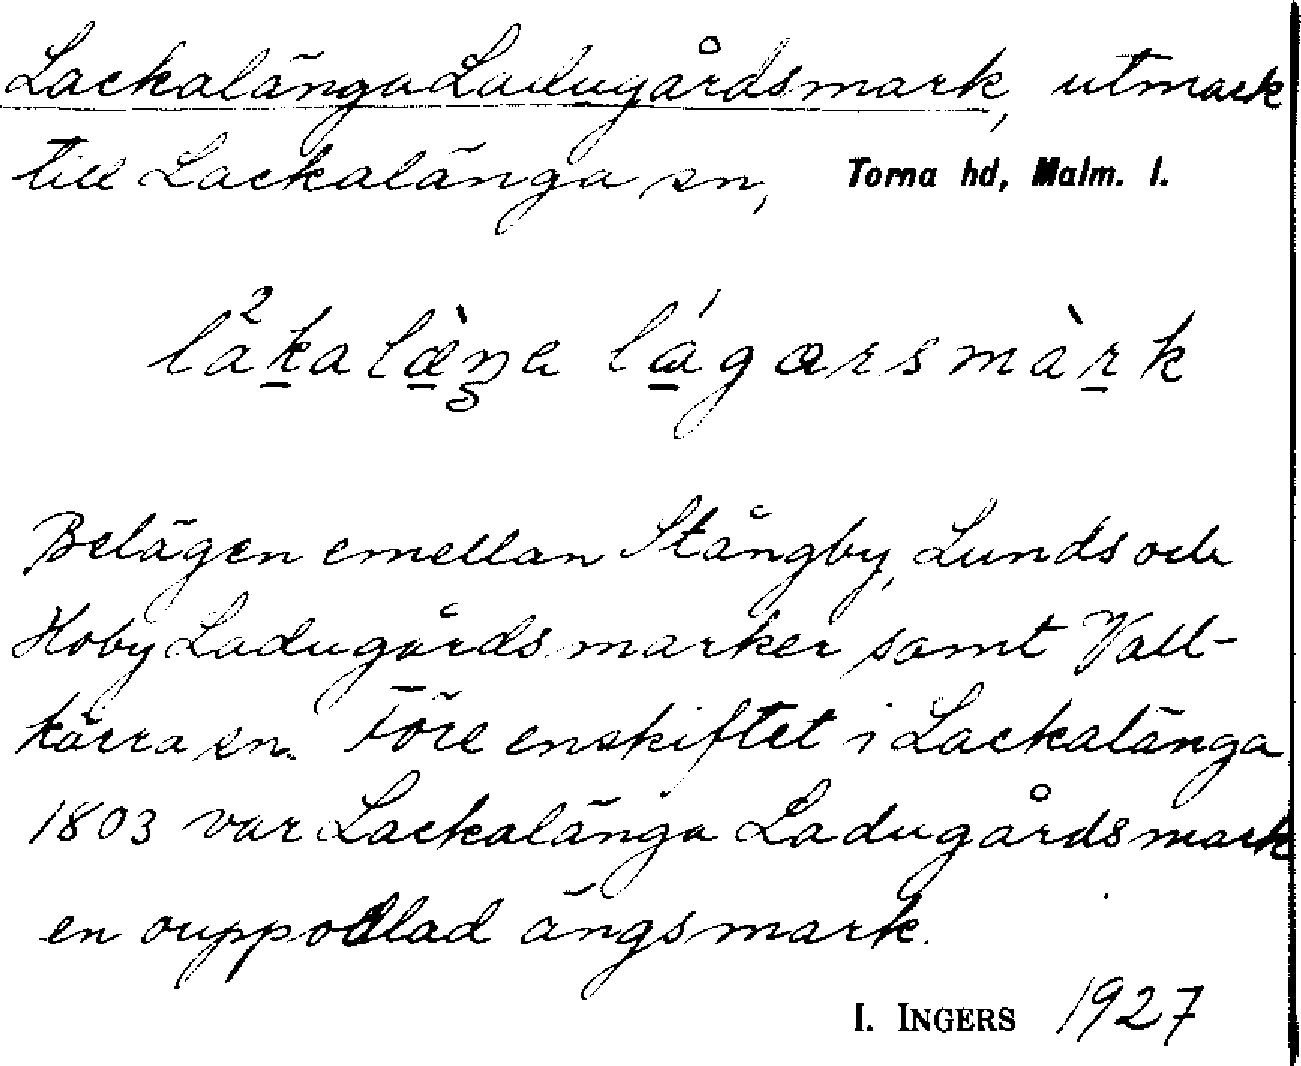 Lackalänga Ladugårdsmark, utmark
till Lackalänga sn, Torna hd, Malm. l.
Belägen emellan Stångby, Lunds och
Hoby Ladugårdsmarker samt Vall-
kärra sn. Före enskiftet i Lackalänga
1803 var Lackalänga Ladugårdsmark
en ouppodlad ängsmark.
I. INGERS 1927